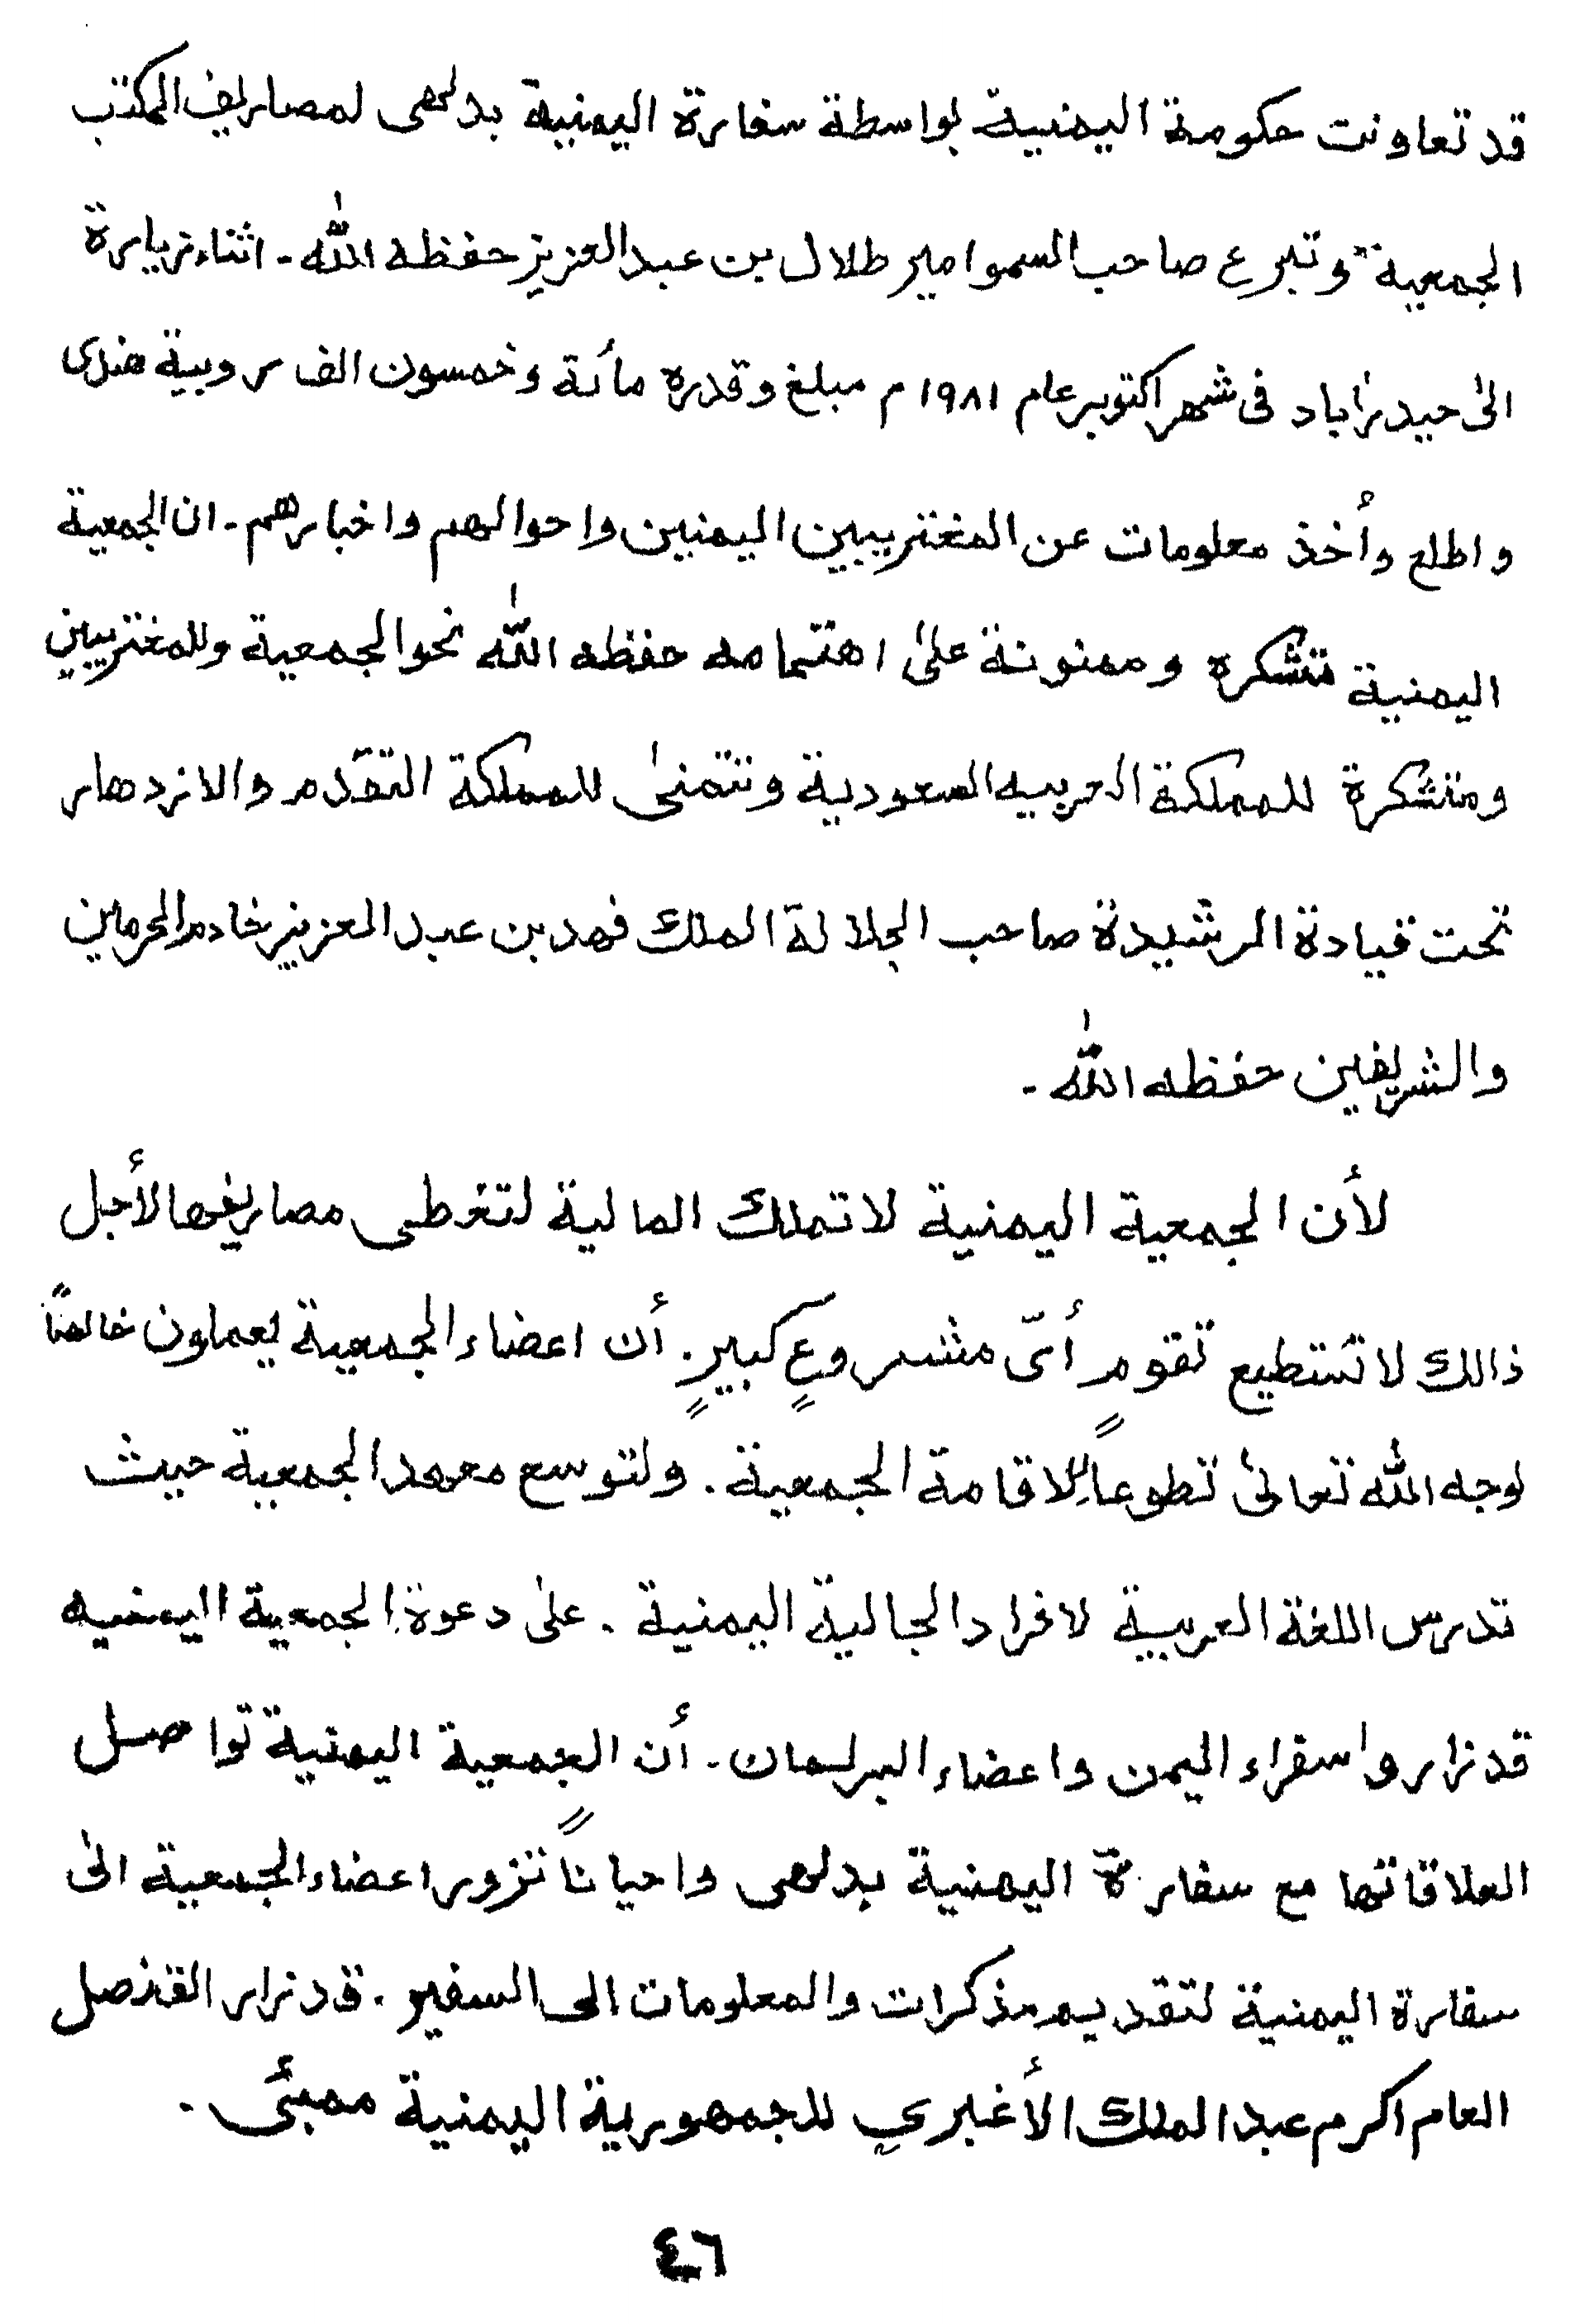 قد تعاونت حكومة اليمنية بواسطة سفارة اليمنية بدلهى لمصاريف المكتب
الجمعية وتبرع صاحب السمو امير طلال بن عبد العزيز حفظه الله - اثناء زيارة
الىٰ حيدرآباد فى شهر اكتوبر عام ١٩٨١ م مبلغ وقدره مأئة وخمسون الف روبية هندى
واطلع وأخذ معلومات عن المغتربيين اليمنين واحوالهم واخبارهم - ان الجمعية
اليمنية تتشكره وممنونة علىٰ اهتمامه حفظه الله نحو الجمعية وللمغتربيين
ومتشكرة للمملكة العربيه السعودية ونتمنىٰ للمملكة التقدم والازدهار
تحت قيادة الرشيدة صاحب الجلالة الملك فهد بن عبد العزيز خادم الحرمين
والشريفين حفظه الله -
لأن الجمعية اليمنية لا تملك المالية لتغطى مصاريفها لأجل
ذالك لا تستطيع تقوم أىّ مشروعٍ كبيرٍ. أن اعضاء الجمعية يعملون خالصًا
لوجه الله تعالىٰ تطوعاً للاقامة الجمعية. ولتوسع معهد الجمعية حيث
تدرس اللغة العربية لافراد الجالية اليمنية. علىٰ دعوة الجمعية اليمنيه
قد زاروا سفراء اليمن واعضاء البرلمان - أن الجمعية اليمنية تواصل
العلاقاتها مع سفارة اليمنية بدلهى واحياناً تزور اعضاء الجمعية الىٰ
سفارة اليمنية لتقديم مذكرات والمعلومات الى السفير. قد زار القنصل
العام اكرم عبد الملك الأغبري للجمهورية اليمنية ممبئى.
٤٦